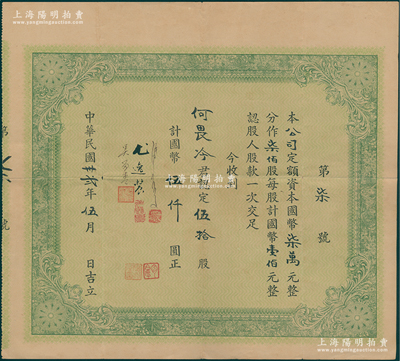 上海陽明拍賣
www.yangmingauction.com
第柒號
本公司定額資本國幣柒萬元整
分作柒佰股每股計國幣壹佰元整
認股人股款一次交足
今收到
何畏冷君認定伍拾股
計國幣伍仟圓正
尤逸農
中華民國卅弍年伍月 日吉立
第
號
上海陽明拍賣
www.yangmingauction.com